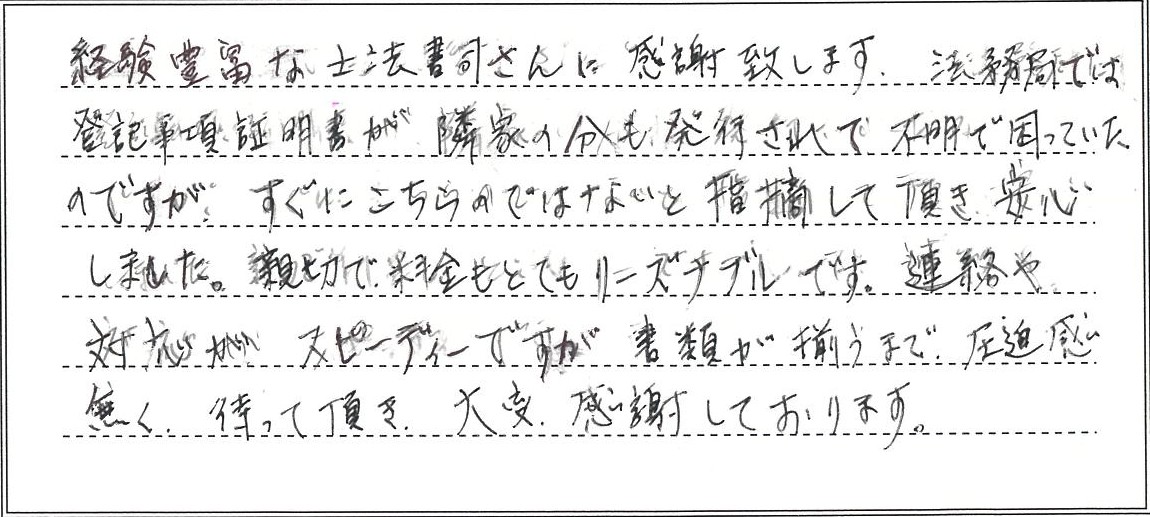 経験豊富な士法書司さんに感謝致します. 法務局では
登記事項証明書が 隣家の分も発行されて不明で困っていた
のですが、すぐにこちらのではないと指摘して頂き、安心
しました。親切で、料金もとてもリーズナブルです。連絡や
対応が スピーディーですが 書類が揃うまで、圧迫感
無く、待って頂き、大変、感謝しております。